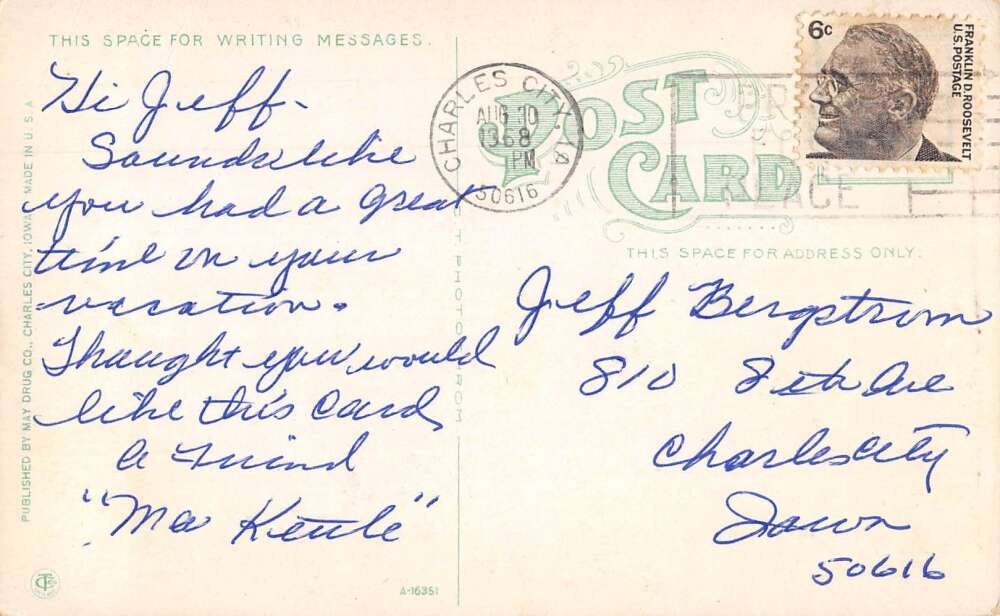 THIS SPACE FOR WRITING MESSAGES.
Hi Jeff-
Sounds like
you had a great
time on your
vacation.
Thought you would
like this card
A Friend
"Ma
PUBLISHED BY MAY DRUG CO., CHARLES CITY, IOWA. MADE IN U.S.A
A-16351
CHARLES CITY, IA
AUG 30
1968
PM
50616
POST
CARD
6c
FRANKLIN D. ROOSEVELT
U.S. POSTAGE
THIS SPACE FOR ADDRESS ONLY.
Jeff Bergstrom
810 8th Ave
Charles City
Iowa
50616